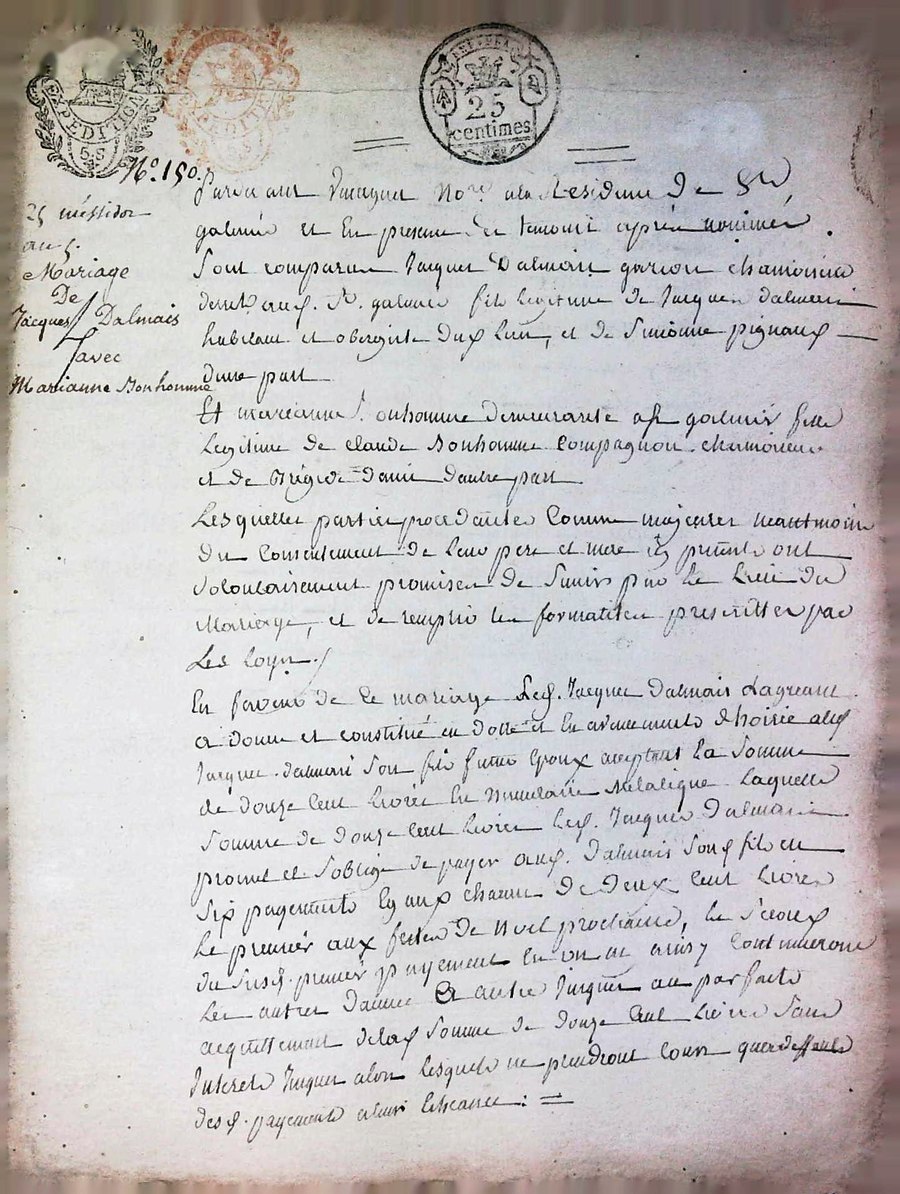 EXPEDITION
25
centimes
N°. 150.
25 messidor
an 5.
Mariage
De
Jacques Dalmais
avec
Marianne Bonhomme
Pardevant Not.re a la Residence de St
galmier et En presence des temoins apres nommés
Sont comparus Jacques Dalmais garcon chamoiseur
St. galmier fils legitime de Jacques dalmais
habitant et dud lieu, et de Simonne pignaud
Dune part
Et marianne Bonhomme demeurante a St galmier fille
Legitime de Claude Bonhomme Compagnon chamoiseur
et de Brigide damie dautre part
Lesquelles parties procedantes Comme majeures neantmoins
Du Consentement de leurs pere et mere icy presents ont
Volontairement promises de Sunir par le lien du
Mariage, et de remplir les formalités prescrittes par
Les loyx./
En faveur de Ce mariage Led. Jacques dalmais Lagreant
a donné et constitué en dotte et En avancement d'hoirie aud
Jacques dalmais Son fils futur Epoux acceptant La Somme
de douze Cent livres En Numeraire Metalique Laquelle
Somme de douze Cent livres Led. Jacques Dalmais
promet et Soblige de payer aud. Dalmais Son fils en
Six payements Egaux chacun de Deux Cent livres
Le premier aux fetes de Noel prochaine, le Second
du Susd. premier payement en un an ainsy Continueront
Les autres dannée En autre Jusques au parfait
acquittement de lad Somme de douze Cent livres Sans
Interets Jusques alors Lesquels ne prendront Cours qua deffaut
desd. payements a leurs Echeance. =